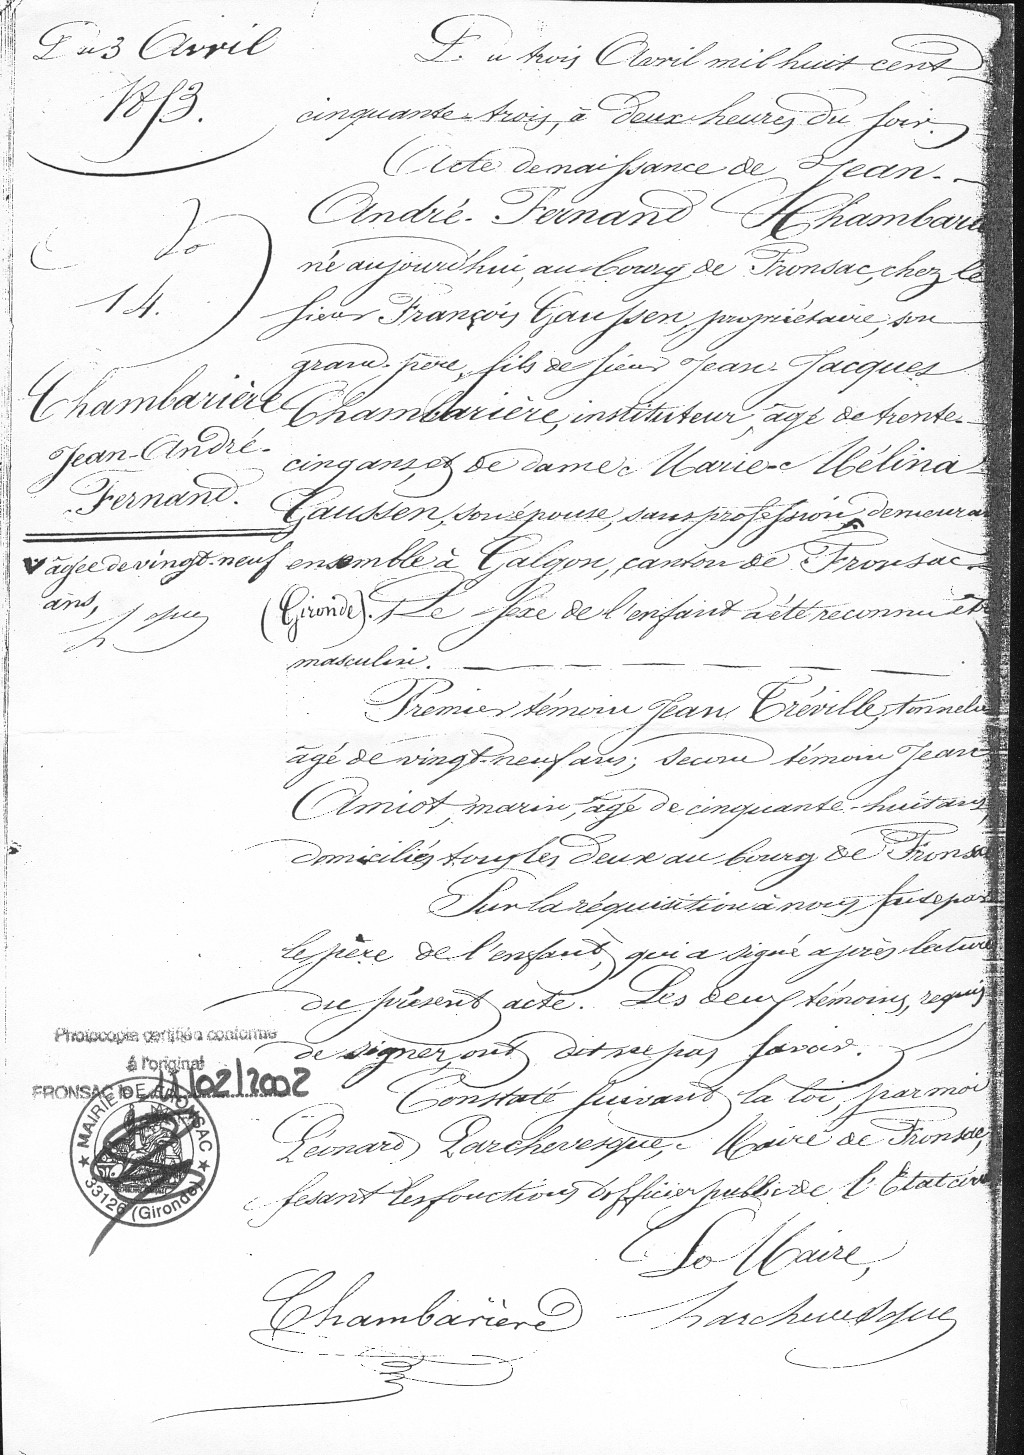 Du 3 Avril
1853.
No
14.
Chambarière
Jean-André-
Fernand.
âgée de vingt-neuf
ans,
Du trois Avril mil huit cent
cinquante-trois, à deux heures du soir.
Acte de naissance de Jean-
André-Fernand Chambari
né aujourd'hui, au bourg de Fronsac, chez le
sieur François Gaussen, propriétaire, son
grand-père, fils de sieur Jean-Jacques
Chambarière, instituteur, âgé de trente-
cinq ans, et de dame Marie Mélina
Gaussen, son épouse, sans profession, demeura
ensemble à Galgon, canton de Fronsac
(Gironde). Le sexe de l'enfant a été reconnu êt
masculin.
Premier témoin Jean Tréville, tonnelie
âgé de vingt-neuf ans; second témoin Jean
Amiot, marin, âgé de cinquante-huit ans,
domiciliés tous les deux au bourg de Fronsac
Sur la réquisition à nous faite par
le père de l'enfant, qui a signé après lecture
du présent acte. Les deux témoins, requis
de signer, ont dit ne pas savoir.
Constaté suivant la loi, par moi
Léonard Larchevesque, Maire de Fronsac,
fesant les fonctions d'officier public de l'Etat civil
Le Maire,
Chambarière Larchevesque
Photocopie certifiée conforme
à l'original
FRONSAC LE 11/02/2002
MAIRIE DE FRONSAC
33126 (Gironde)